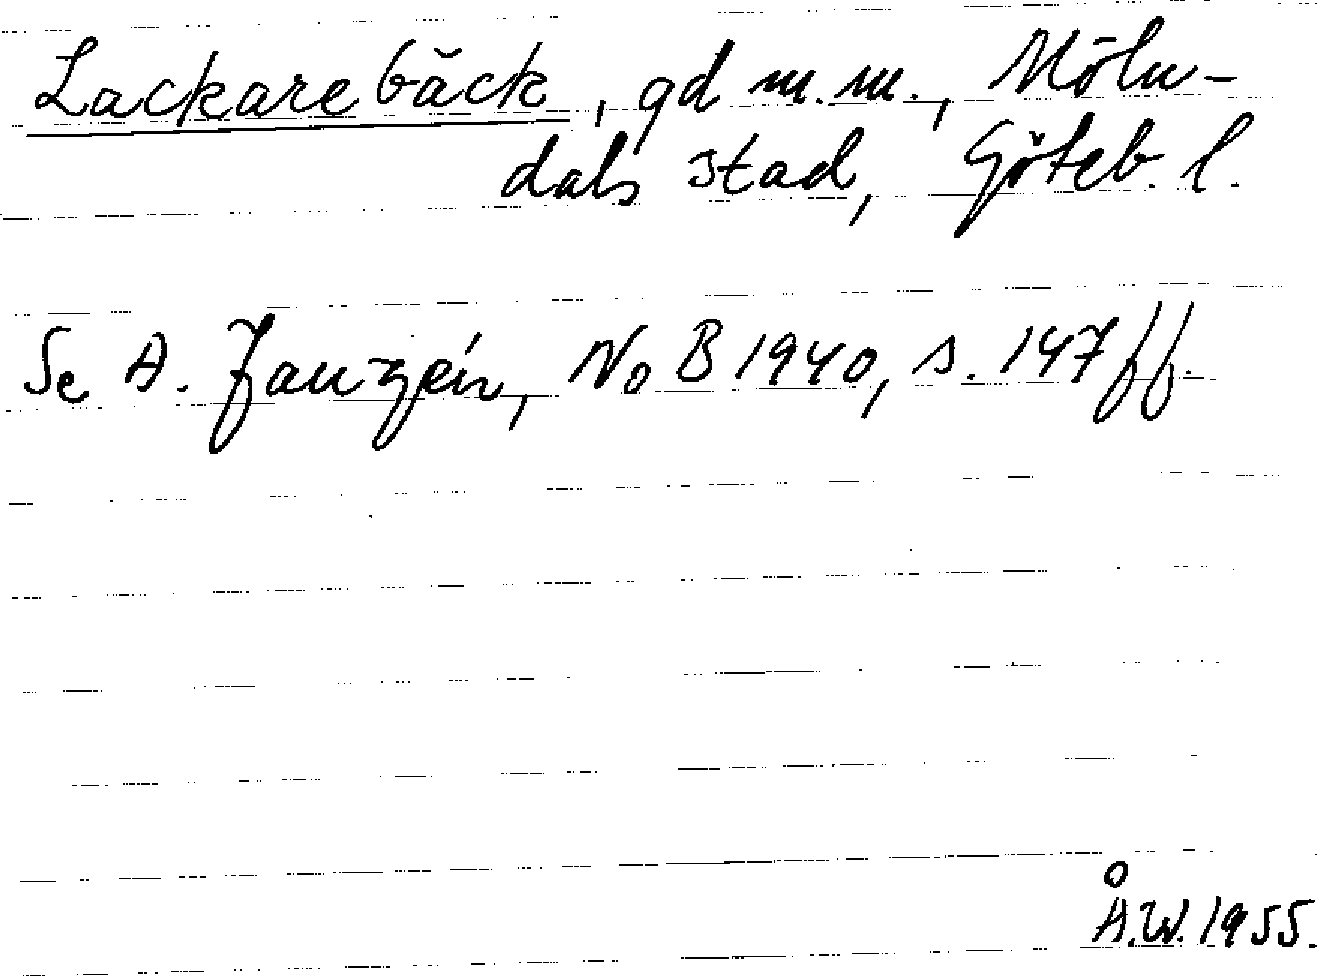 Lackarebäck, gd m.m., Möln-
dals stad, Göteb. l.
Se A. Janzén, NoB 1940, s. 147 ff.
Å.W. 1955.